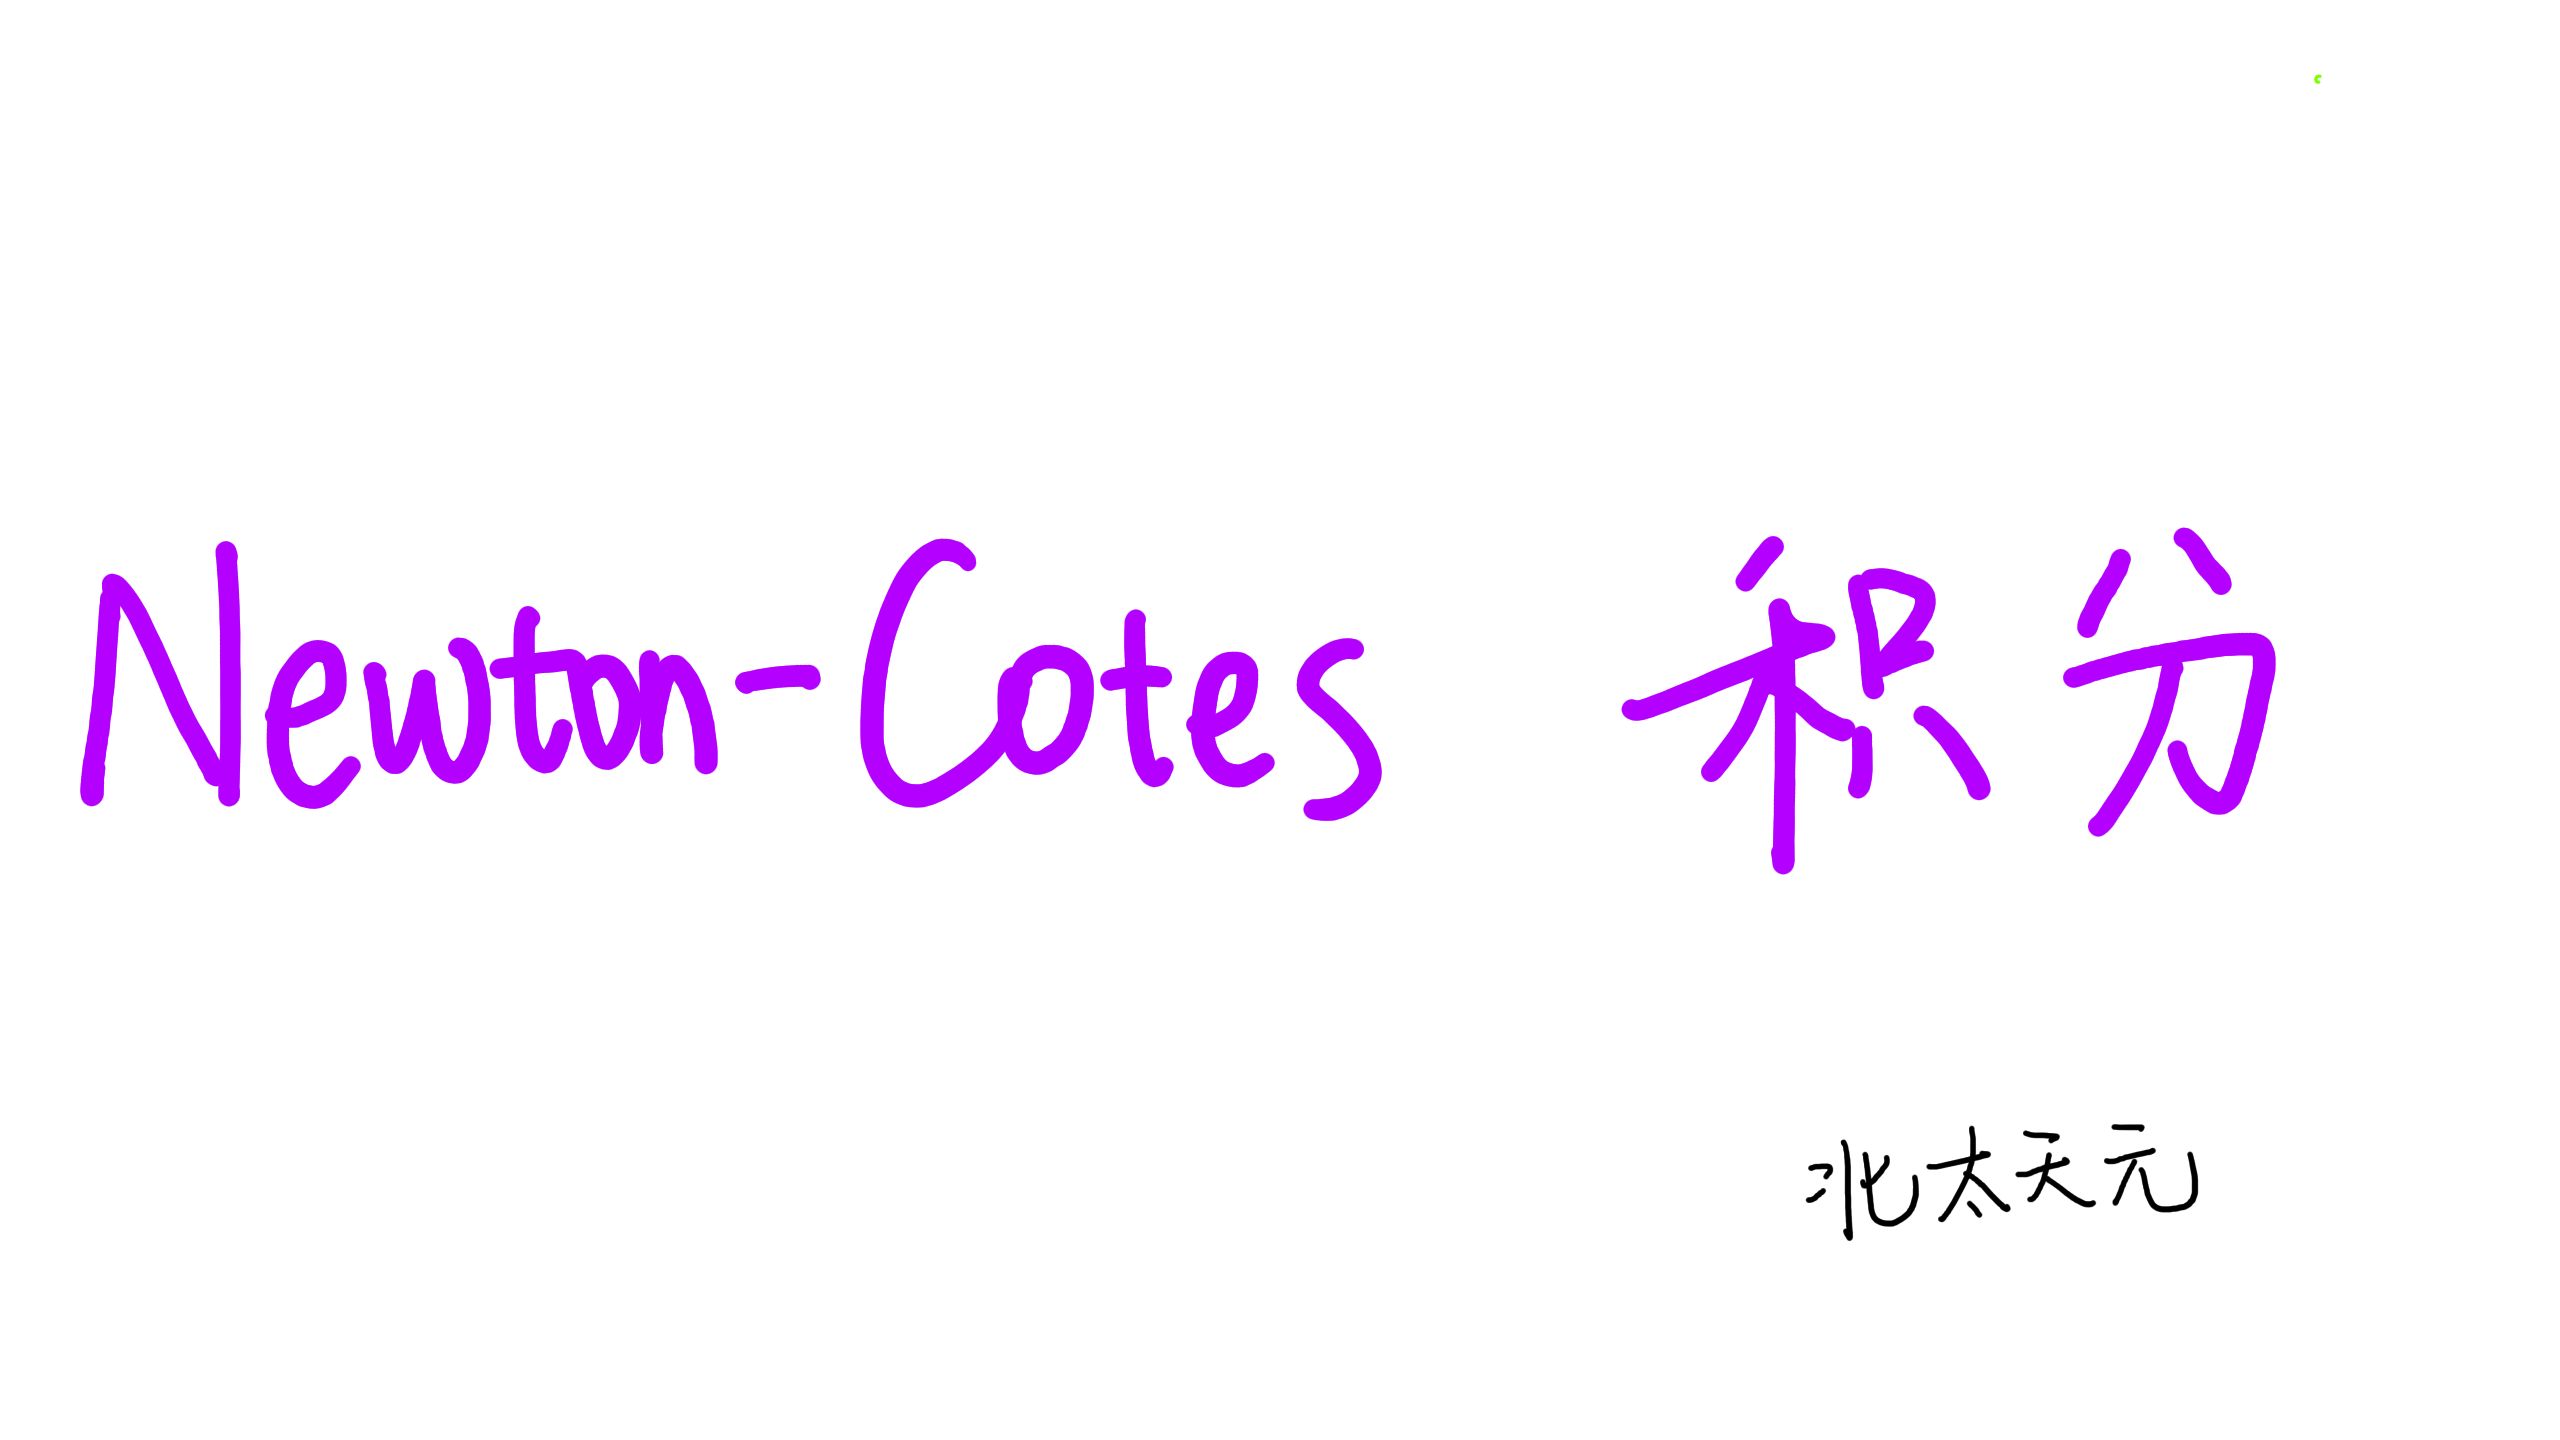 Newton-Cotes 积分
北太天元